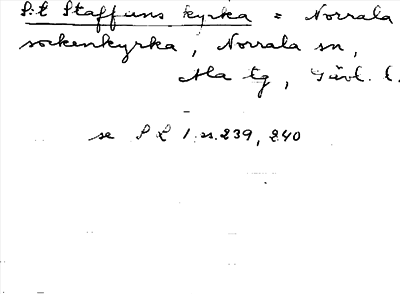 S:t Staffans kyrka = Norrala
sockenkyrka, Norrala sn,
Ala tg, Gävl. l.
se SL 1, s. 239, 240